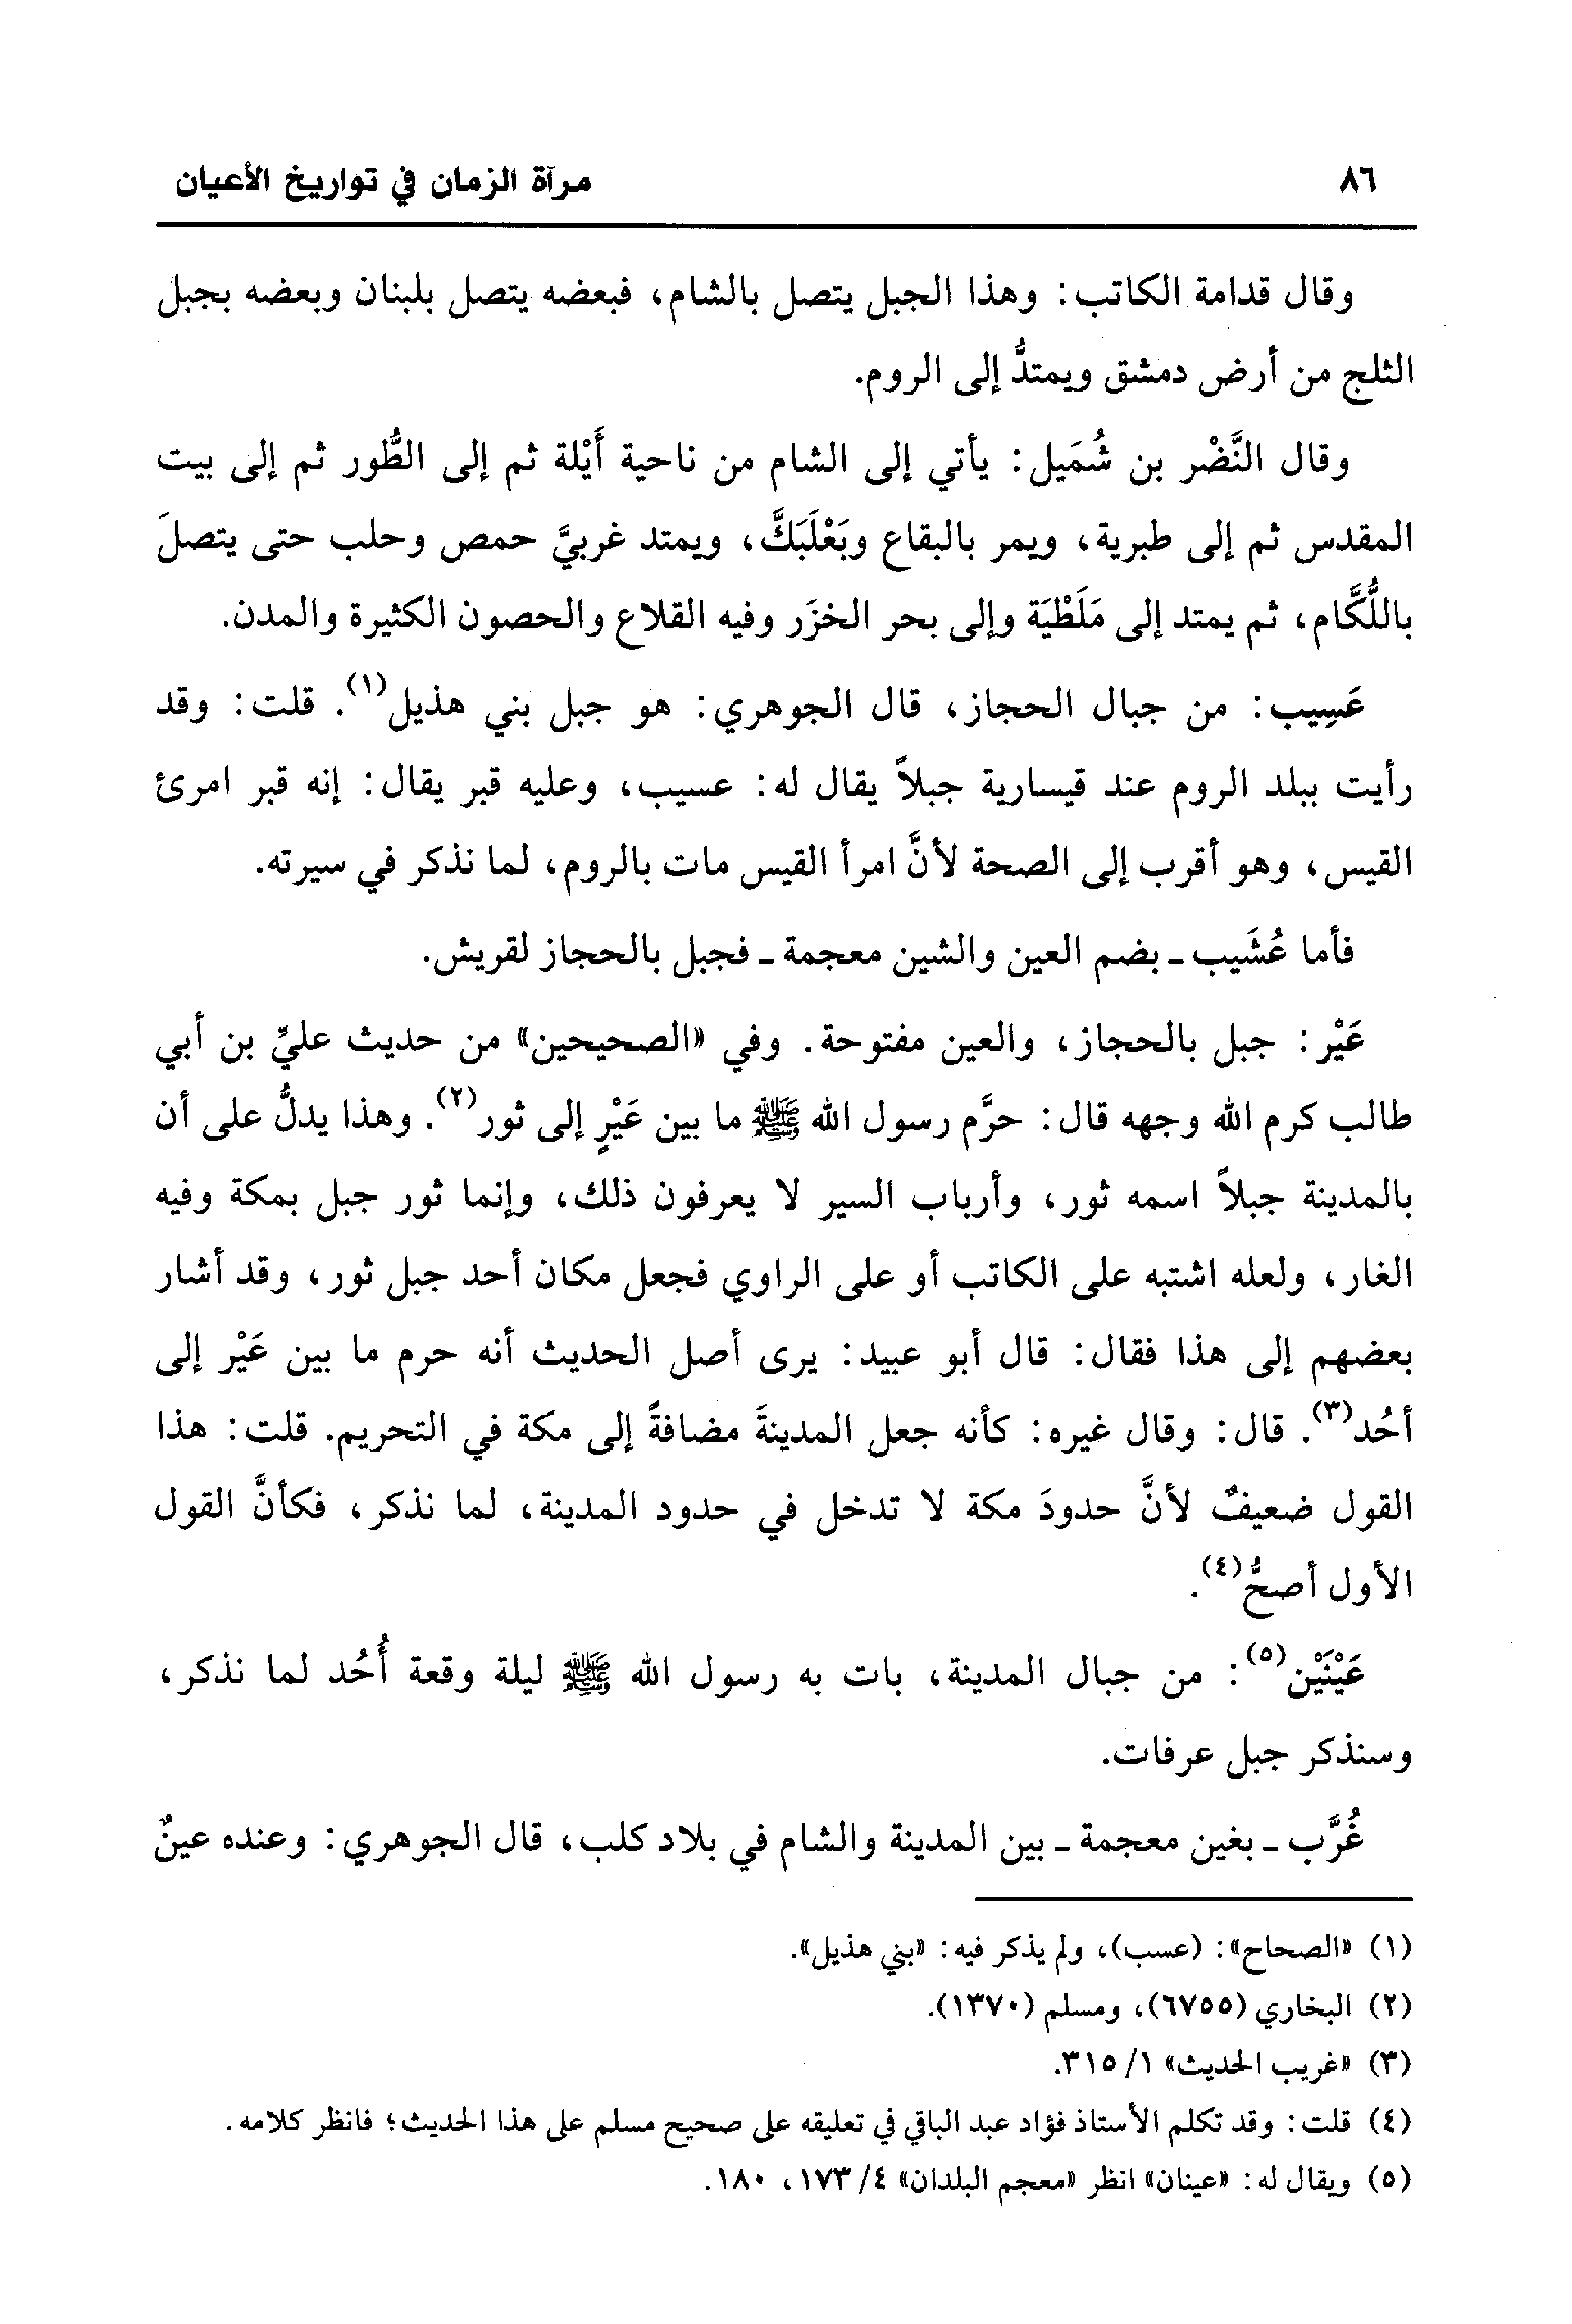 ٨٦ مرآة الزمان في تواريخ الأعيان
وقال قدامة الكاتب: وهذا الجبل يتصل بالشام، فبعضه يتصل بلبنان وبعضه بجبل
الثلج من أرض دمشق ويمتدُّ إلى الروم.
وقال النَّضْر بن شُمَيل: يأتي إلى الشام من ناحية أَيْلة ثم إلى الطُّور ثم إلى بيت
المقدس ثم إلى طبرية، ويمر بالبقاع وبَعْلَبَكَّ، ويمتد غربيَّ حمص وحلب حتى يتصلَ
باللُّكَّام، ثم يمتد إلى مَلَطْيَة وإلى بحر الخزَر وفيه القلاع والحصون الكثيرة والمدن.
عَسِيب: من جبال الحجاز، قال الجوهري: هو جبل بني هذيل(١). قلت: وقد
رأيت ببلد الروم عند قيسارية جبلاً يقال له: عسيب، وعليه قبر يقال: إنه قبر امرئ
القيس، وهو أقرب إلى الصحة لأنَّ امرأ القيس مات بالروم، لما نذكر في سيرته.
فأما عُشَيب ـ بضم العين والشين معجمة ـ فجبل بالحجاز لقريش.
عَيْر: جبل بالحجاز، والعين مفتوحة. وفي «الصحيحين» من حديث عليِّ بن أبي
طالب كرم الله وجهه قال: حرَّم رسول الله ﷺ ما بين عَيْرٍ إلى ثور(٢). وهذا يدلُّ على أن
بالمدينة جبلاً اسمه ثور، وأرباب السير لا يعرفون ذلك، وإنما ثور جبل بمكة وفيه
الغار، ولعله اشتبه على الكاتب أو على الراوي فجعل مكان أحد جبل ثور، وقد أشار
بعضهم إلى هذا فقال: قال أبو عبيد: يرى أصل الحديث أنه حرم ما بين عَيْر إلى
أحُد(٣). قال: وقال غيره: كأنه جعل المدينةَ مضافةً إلى مكة في التحريم. قلت: هذا
القول ضعيفٌ لأنَّ حدودَ مكة لا تدخل في حدود المدينة، لما نذكر، فكأنَّ القول
الأول أصحُّ(٤).
عَيْنَيْن(٥): من جبال المدينة، بات به رسول الله ﷺ ليلة وقعة أُحُد لما نذكر،
وسنذكر جبل عرفات.
غُرَّب ـ بغين معجمة ـ بين المدينة والشام في بلاد كلب، قال الجوهري: وعنده عينٌ
(١) «الصحاح»: (عسب)، ولم يذكر فيه: «بني هذيل».
(٢) البخاري (٦٧٥٥)، ومسلم (١٣٧٠).
(٣) «غريب الحديث» ١/ ٣١٥.
(٤) قلت: وقد تكلم الأستاذ فؤاد عبد الباقي في تعليقه على صحيح مسلم على هذا الحديث؛ فانظر كلامه.
(٥) ويقال له: «عينان» انظر «معجم البلدان» ٤/ ١٧٣، ١٨٠.